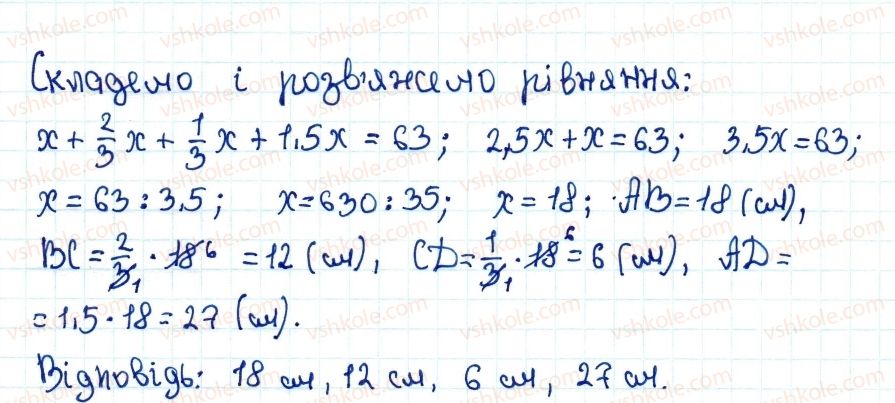 Складемо і розв'яжемо рівняння:
x + 2/3 x + 1/3 x + 1.5x = 63; 2,5x + x = 63; 3,5x = 63;
x = 63 : 3,5; x = 630 : 35; x = 18; AB = 18 (см),
BC = 2/3 1 · 18 6 = 12 (см), CD = 1/3 1 · 18 6 = 6 (см), AD =
= 1,5 · 18 = 27 (см).
Відповідь: 18 см, 12 см, 6 см, 27 см.